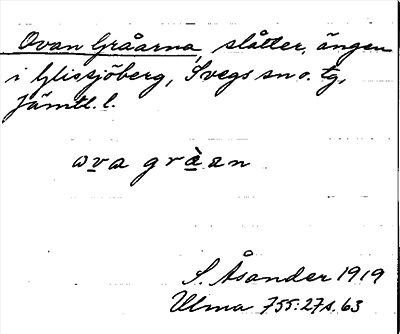 Ovan Gråarna, slåtter, ängen
i Glissjöberg, Svegs sn o. tg,
Jämtl. l.
ova gràan
S. Åsander 1919
Ulma 755:27 s. 63